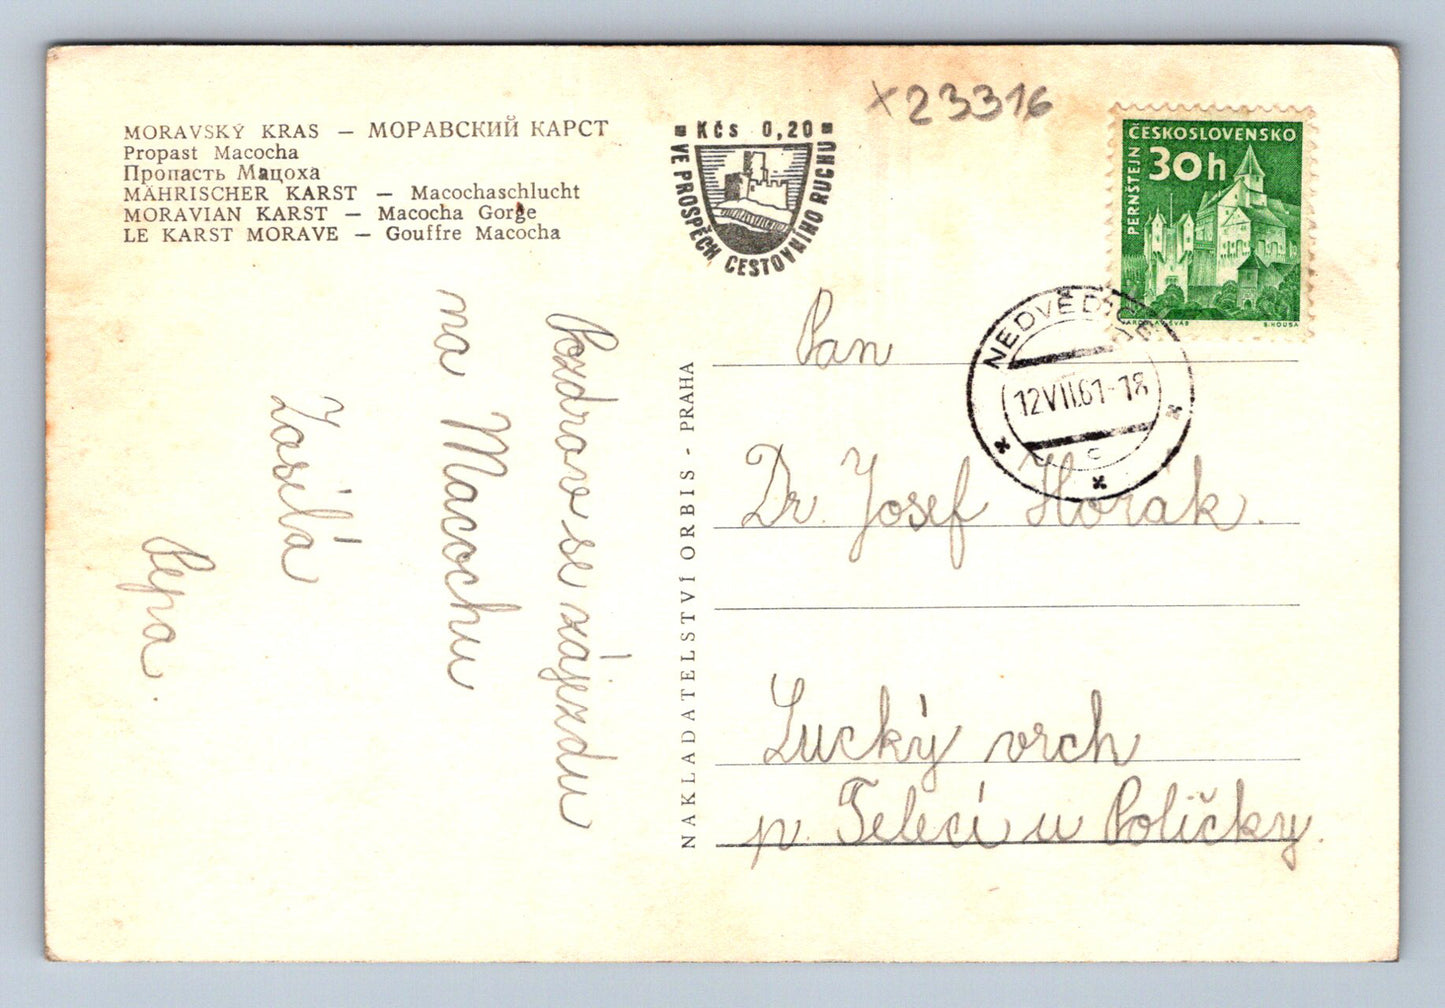 MORAVSKÝ KRAS — МОРАВСКИЙ КАРСТ
Propast Macocha
Пропасть Мацоха
MÄHRISCHER KARST — Macochaschlucht
MORAVIAN KARST — Macocha Gorge
LE KARST MORAVE — Gouffre Macocha
Kčs 0,20
VE PROSPĚCH CESTOVNÍHO RUCHU
x 23316
ČESKOSLOVENSKO
30h
PERNŠTEJN
JAROSLAV ŠVÁB
B. HOUSA
NEDVĚDICE
12.VII.61-18
c
Pozdrav se zájezdu
na Macochu
Zasílá
Pepa.
NAKLADATELSTVÍ ORBIS - PRAHA
Pan
Dr. Josef Horák.
Lucký vrch
p. Telecí u Poličky.